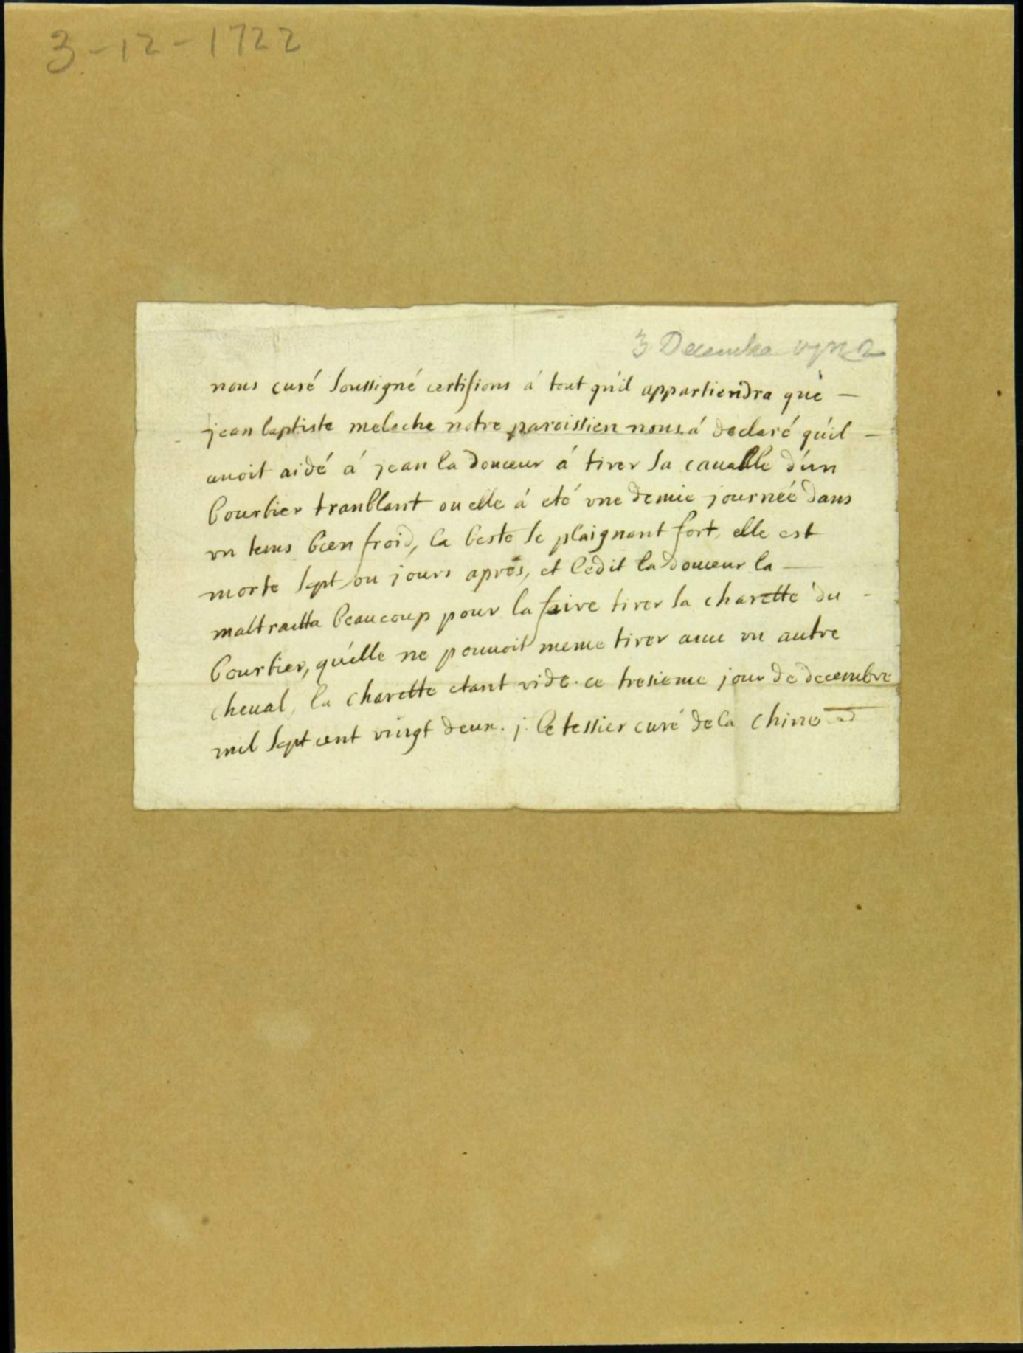 3-12-1722
3 Decembre 1722
nous curé soussigné certifions á tout qu'il appartiendra que —
jean baptiste meloche notre paroissien nous á declaré qu'il —
avoit aidé á jean la douceur á tirer sa cavalle d'un
bourbier tranblant ou elle á eté une demie journée dans
un tems bien froid, la beste se plaignant fort, elle est
morte sept ou jours aprés, et ledit la douceur la —
maltraitta beaucoup pour la faire tirer sa charette du -
bourbier, qu'elle ne pouvoit meme tirer avec un autre
cheval, la charette etant vide. ce tresieme jour de decembre
mil sept cent vingt deux. j. le tessier curé de la chine